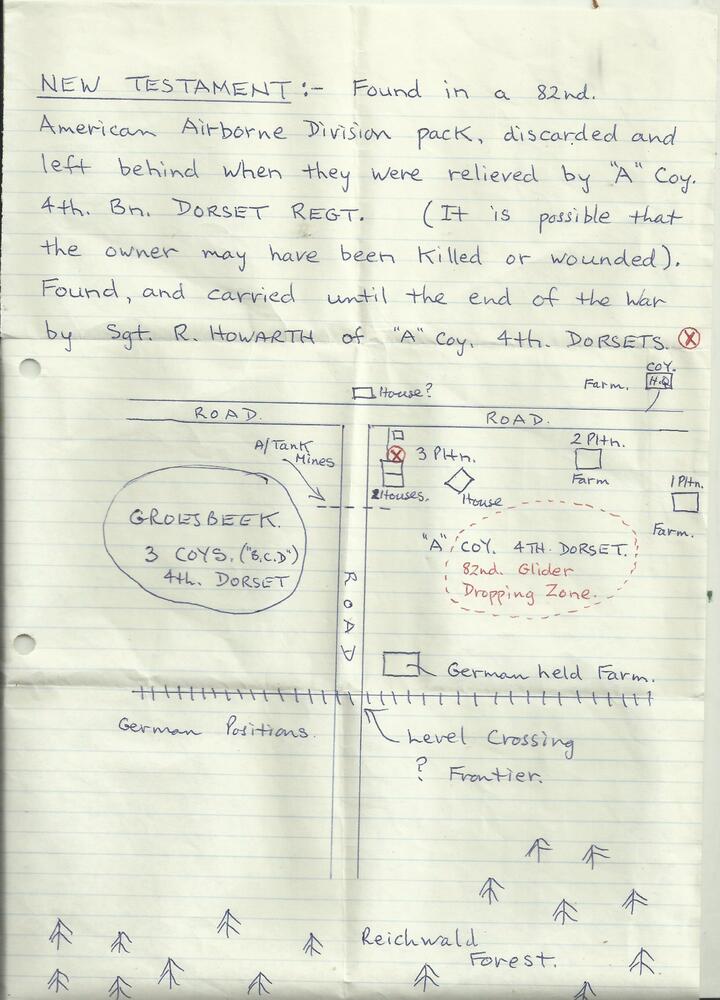 NEW TESTAMENT :- Found in a 82nd.
American Airborne Division pack, discarded and
left behind when they were relieved by "A" Coy.
4th. Bn. DORSET REGT. (It is possible that
the owner may have been killed or wounded).
Found, and carried until the end of the war
by Sgt. R. HOWARTH of "A" Coy. 4th. DORSETS. X
COY.
H.Q
Farm.
House?
ROAD.
ROAD.
A/Tank
Mines
X
3 Pltn.
2 Pltn.
Farm
1 Pltn.
Farm.
2 Houses.
House
GROESBEEK.
3 COYS. ("B.C.D")
4th. DORSET
"A" COY. 4TH. DORSET.
82nd. Glider
Dropping Zone.
ROAD
German held Farm.
German Positions.
Level Crossing
? Frontier.
Reichwald
Forest.